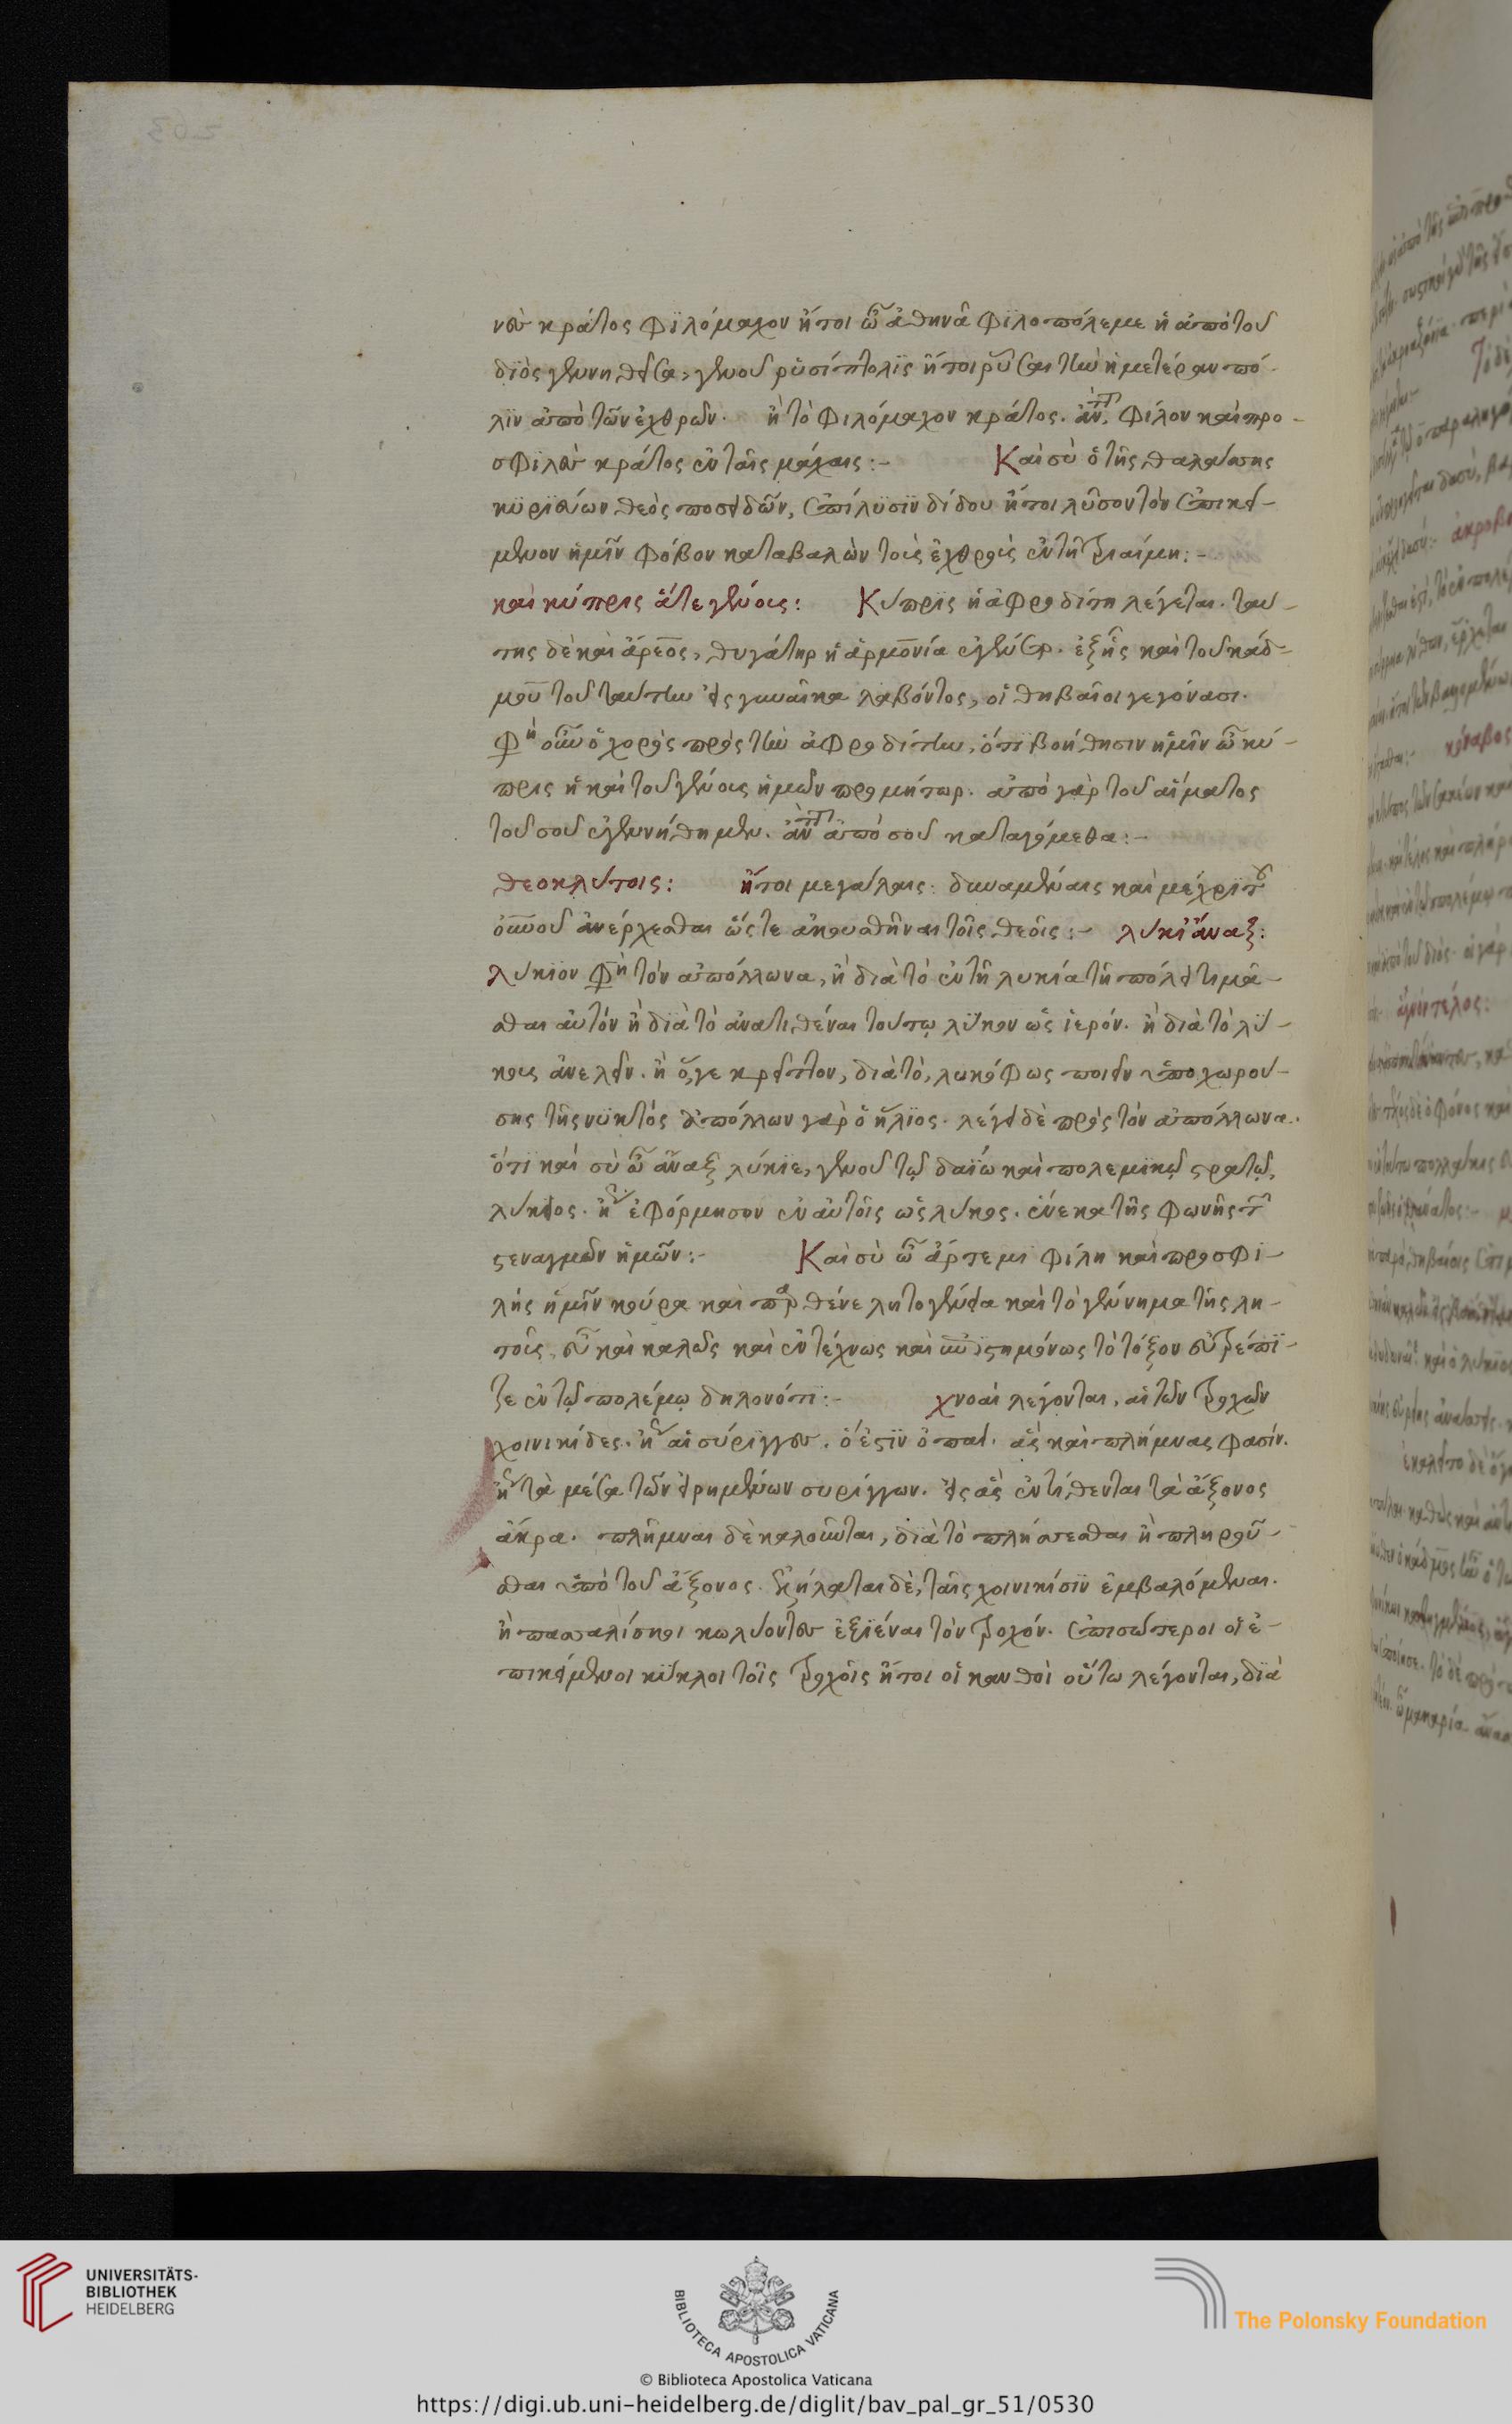 νὸν κράτος φϊλόμαχον ἤτοι ὦ ἀθηνᾶ φϊλοπόλεμε ἡ ἀπὸ τοῦ
διὸς γεννηθεῖσα, γενοῦ ῥυσίπτολϊς ἤτοι ῥῦσαι τὴν ἡμετέραν πό-
λϊν ἀπὸ τῶν ἐχθρῶν. ἢ τὸ φιλόμαχον κράτος. ἀντὶ, φίλον καὶ προ-
σφιλὲς κράτος ἐν ταῖς μάχαις:- Καὶ σὺ ὁ τῆς θαλάσσης
κυριεύων θεὸς ποσειδῶν, ἐπίλυσϊν δίδου ἤτοι λῦσον τὸν ἐπικεί-
μενον ἡμῖν φόβον καταβαλὼν τοῖς ἐχθροῖς ἐν τῇ τριαίνη:-
καὶ κύπρις ἅτε γένους: Κύπρϊς ἡ ἀφροδίτη λέγεται. ταύ-
της δὲ καὶ ἄρεος, θυγάτηρ ἡ ἁρμονία ἐγένετο. ἐξ ἧς καὶ τοῦ κάδ-
μου τοῦ ταύτην εἰς γυναῖκα λαβόντος, οἱ θηβαῖοι γεγόνασι.
φησὶν οὖν ὁ χορὸς πρὸς τὴν ἀφροδίτην, ὅτι βοήθησιν ἡμῖν ὦ κύ-
πρις ἡ καὶ τοῦ γένους ἡμῶν προμήτωρ. ἀπὸ γὰρ τοῦ αἵματος
τοῦ σοῦ ἐγεννήθημεν. ἀντὶ ἀπὸ σοῦ καταγόμεθα:-
θεοκλύτοις: ἤτοι μεγάλαις δυναμέναις καὶ μέχρι τοῦ
οὐνοῦ ἀνέρχεσθαι ὥστε ἀκουσθῆναι τοῖς θεοῖς:- λύκι' ἄναξ:
λύκϊον φησὶ τὸν ἀπόλλωνα, ἢ διὰ τὸ ἐν τῇ λυκία τῇ πόλει τιμᾶ-
σθαι αὐτὸν ἢ διὰ τὸ ἀνατιθέναι τούτῳ λύκον ὡς ἱερόν. ἢ διὰ τὸ λύ-
κους ἀνελεῖν. ἢ ὅγε κρεῖττον, διὰ τὸ, λυκόφως ποιεῖν ὑποχωρού-
σης τῆς νυκτὸς ἀπόλλων γὰρ ὁ ἥλϊος. λέγει δὲ πρὸς τὸν ἀπόλλωνα.
ὅτι καὶ σὺ ὦ ἄναξ λύκϊε, γενοῦ τῷ δαΐῳ καὶ πολεμϊκῷ στρατῷ,
λύκειος. ἤγουν ἐφόρμησον ἐν αὐτοῖς ὡς λύκος. ἕνεκα τῆς φωνῆς τῶν
στεναγμῶν ἡμῶν:- Καὶ σὺ ὦ ἄρτεμι φίλη καὶ προσφι-
λής ἡμῖν κούρα καὶ παρθένε λητογένεια καὶ τὸ γέννημα τῆς λη-
τοῦς, εὖ καὶ καλῶς καὶ ἐντέχνως καὶ ἐπιστημόνως τὸ τόξον εὐτρέπϊ-
ζε ἐν τῷ πολέμῳ δηλονότι:- χνοαὶ λέγονται, αἱ τῶν τροχῶν
χοινικίδες. ἤγουν αἱ σύριγγες. ὅ ἐστϊν ὀπαί. ἃς καὶ πλήμνας φασίν.
ἤγουν τὰ μέσα τῶν εἰρημένων συρίγγων. εἰς ἃς ἐντίθενται τὰ ἄξονος
ἄκρα. πλῆμναι δὲ καλοῦνται, διὰ τὸ πλήσσεσθαι ἢ πληροῦ-
σθαι ὑπὸ τοῦ ἄξονος. ἐξήλαται δὲ, ταῖς χοινικίσϊν ἐμβαλόμεναι.
ἢ πασσαλίσκοι κωλύοντες ἐξϊέναι τὸν τροχόν. ἐπισώτεροι οἱ ἐ-
πικείμενοι κύκλοι τοῖς τροχοῖς ἤτοι οἱ κανθοὶ οὕτω λέγονται, διὰ
UNIVERSITÄTS-
BIBLIOTHEK
HEIDELBERG
BIBLIOTECA APOSTOLICA VATICANA
The Polonsky Foundation
© Biblioteca Apostolica Vaticana
https://digi.ub.uni-heidelberg.de/diglit/bav_pal_gr_51/0530